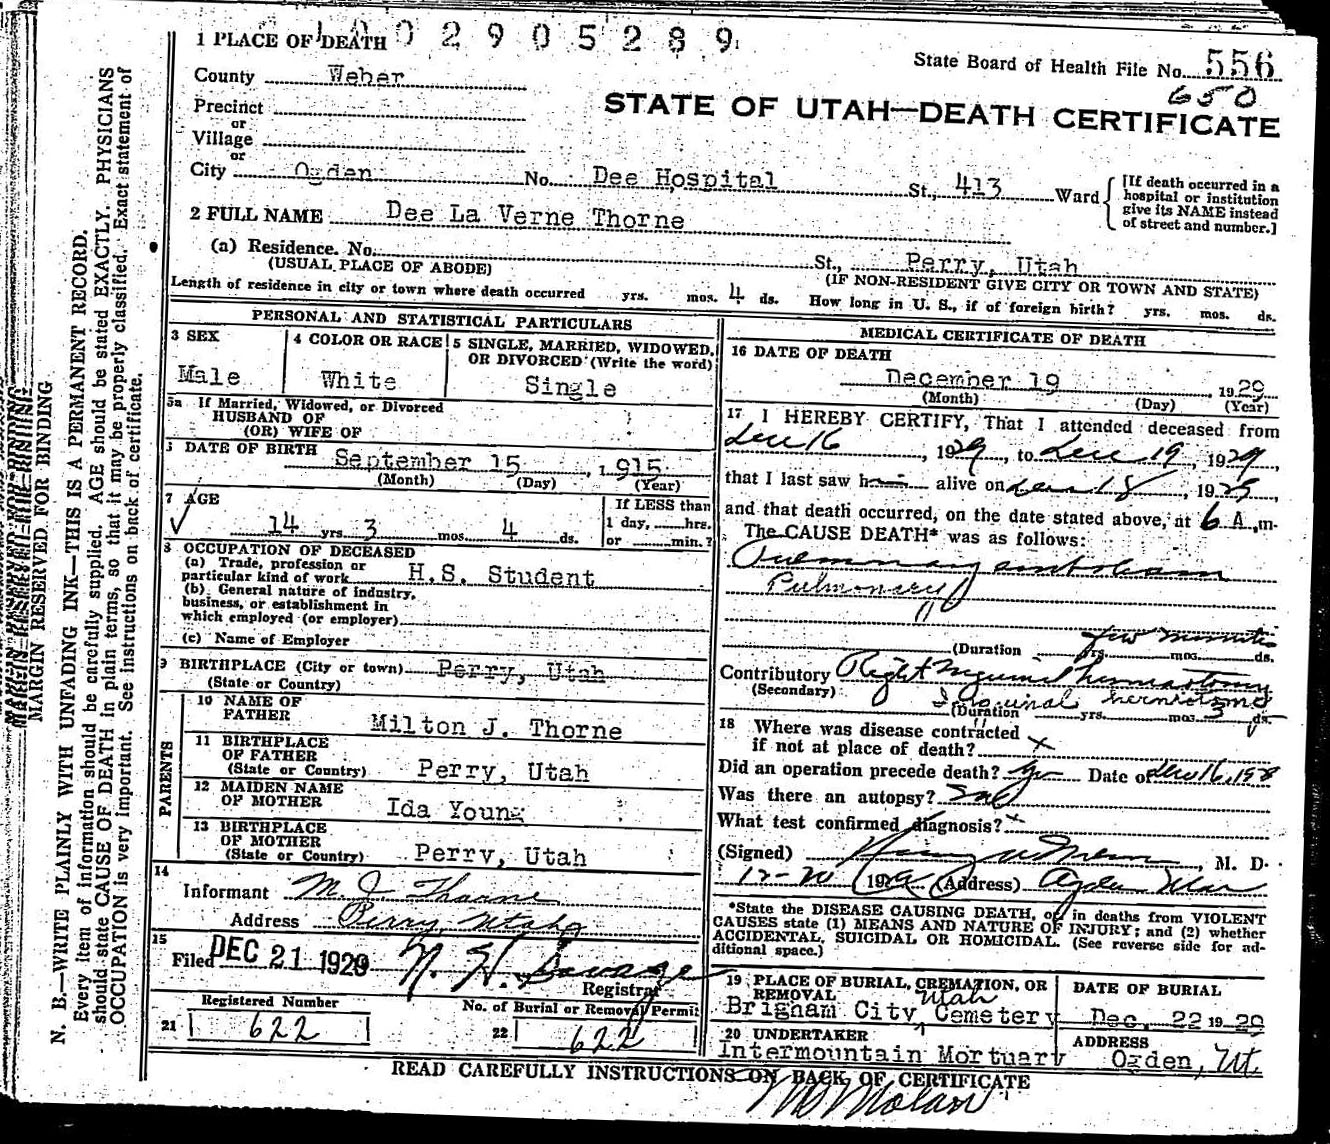 1002905289
1 PLACE OF DEATH
State Board of Health File No. 556
650
County Weber
STATE OF UTAH—DEATH CERTIFICATE
Precinct
or
Village
or
City Ogden No. Dee Hospital St., 413 Ward
[If death occurred in a hospital or institution give its NAME instead of street and number.]
2 FULL NAME Dee La Verne Thorne
(a) Residence. No. St., Perry, Utah
(USUAL PLACE OF ABODE) (IF NON-RESIDENT GIVE CITY OR TOWN AND STATE)
Length of residence in city or town where death occurred yrs. mos. 4 ds. How long in U. S., if of foreign birth? yrs. mos. ds.
PERSONAL AND STATISTICAL PARTICULARS
3 SEX
Male
4 COLOR OR RACE
White
5 SINGLE, MARRIED, WIDOWED, OR DIVORCED (Write the word)
Single
5a If Married, Widowed, or Divorced
HUSBAND OF
(OR) WIFE OF
6 DATE OF BIRTH September 15, 1915
(Month) (Day) (Year)
7 AGE
14 yrs. 3 mos. 4 ds.
If LESS than
1 day, hrs.
or min.?
8 OCCUPATION OF DECEASED
(a) Trade, profession or
particular kind of work H.S. Student
(b) General nature of industry,
business, or establishment in
which employed (or employer)
(c) Name of Employer
9 BIRTHPLACE (City or town) Perry, Utah
(State or Country)
PARENTS
10 NAME OF
FATHER Milton J. Thorne
11 BIRTHPLACE
OF FATHER
(State or Country) Perry, Utah
12 MAIDEN NAME
OF MOTHER Ida Young
13 BIRTHPLACE
OF MOTHER
(State or Country) Perry, Utah
14
Informant M. J. Thorne
Address Perry Utah
15
Filed DEC 21 1929 N. H. Savage
Registrar
Registered Number
21 622
No. of Burial or Removal Permit
22 622
MEDICAL CERTIFICATE OF DEATH
16 DATE OF DEATH
December 19 1929
(Month) (Day) (Year)
17 I HEREBY CERTIFY, That I attended deceased from
Dec 16, 1929, to Dec 19, 1929,
that I last saw him alive on Dec 18, 1929,
and that death occurred, on the date stated above, at 6 A.m.
The CAUSE DEATH* was as follows:
Pulmonary embolism
Pulmonary "
few minutes
(Duration yrs. mos. ds.
Contributory Right Inguinal herniotomy
(Secondary) Inguinal herniotomy
(Duration yrs. mos. 3 ds.
18 Where was disease contracted
if not at place of death? x
Did an operation precede death? yes Date of Dec 16, 1928
Was there an autopsy? no
What test confirmed diagnosis? x
(Signed) , M. D.
12-20 1929 (Address) Ogden Utah
*State the DISEASE CAUSING DEATH, or in deaths from VIOLENT
CAUSES state (1) MEANS AND NATURE OF INJURY; and (2) whether
ACCIDENTAL, SUICIDAL OR HOMICIDAL. (See reverse side for ad-
ditional space.)
19 PLACE OF BURIAL, CREMATION, OR
REMOVAL Utah
Brigham City Cemetery
DATE OF BURIAL
Dec. 22 1929
20 UNDERTAKER
Intermountain Mortuary
ADDRESS
Ogden, Ut.
READ CAREFULLY INSTRUCTIONS ON BACK OF CERTIFICATE
MARGIN RESERVED FOR BINDING
N. B.—WRITE PLAINLY WITH UNFADING INK—THIS IS A PERMANENT RECORD.
Every item of information should be carefully supplied. AGE should be stated EXACTLY. PHYSICIANS
should state CAUSE OF DEATH in plain terms, so that it may be properly classified. Exact statement of
OCCUPATION is very important. See instructions on back of certificate.